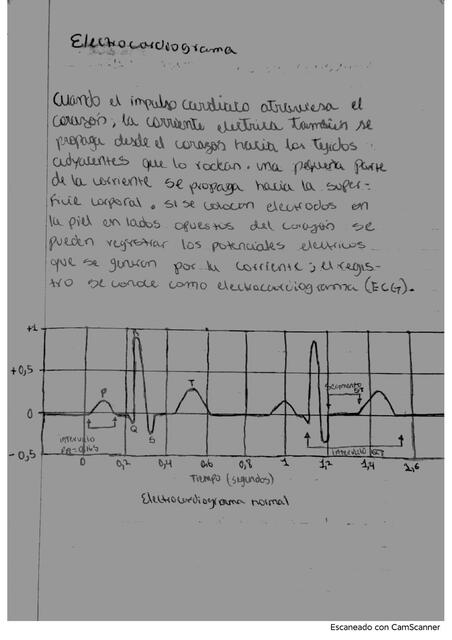 Electrocardiograma
Cuando el impulso cardiaco atraviesa el
corazón, la corriente electrica también se
propaga desde el corazon hacia los tejidos
adyacentes que lo rodean. una pequeña parte
de la corriente se propaga hacia la super-
ficie corporal. si se colocan electrodos en
la piel en lados opuestos del corazón se
pueden registrar los potenciales electricos
que se generan por la corriente; el regis-
tro se conoce como electrocardiograma (ECG).
+1
+0,5
0
-0,5
P
Q
S
T
segmento
ST
intervalo
PR=0,16s
intervalo QT
0 0,2 0,4 0,6 0,8 1 1,2 1,4 1,6
Tiempo (segundos)
Electrocardiograma normal
Escaneado con CamScanner